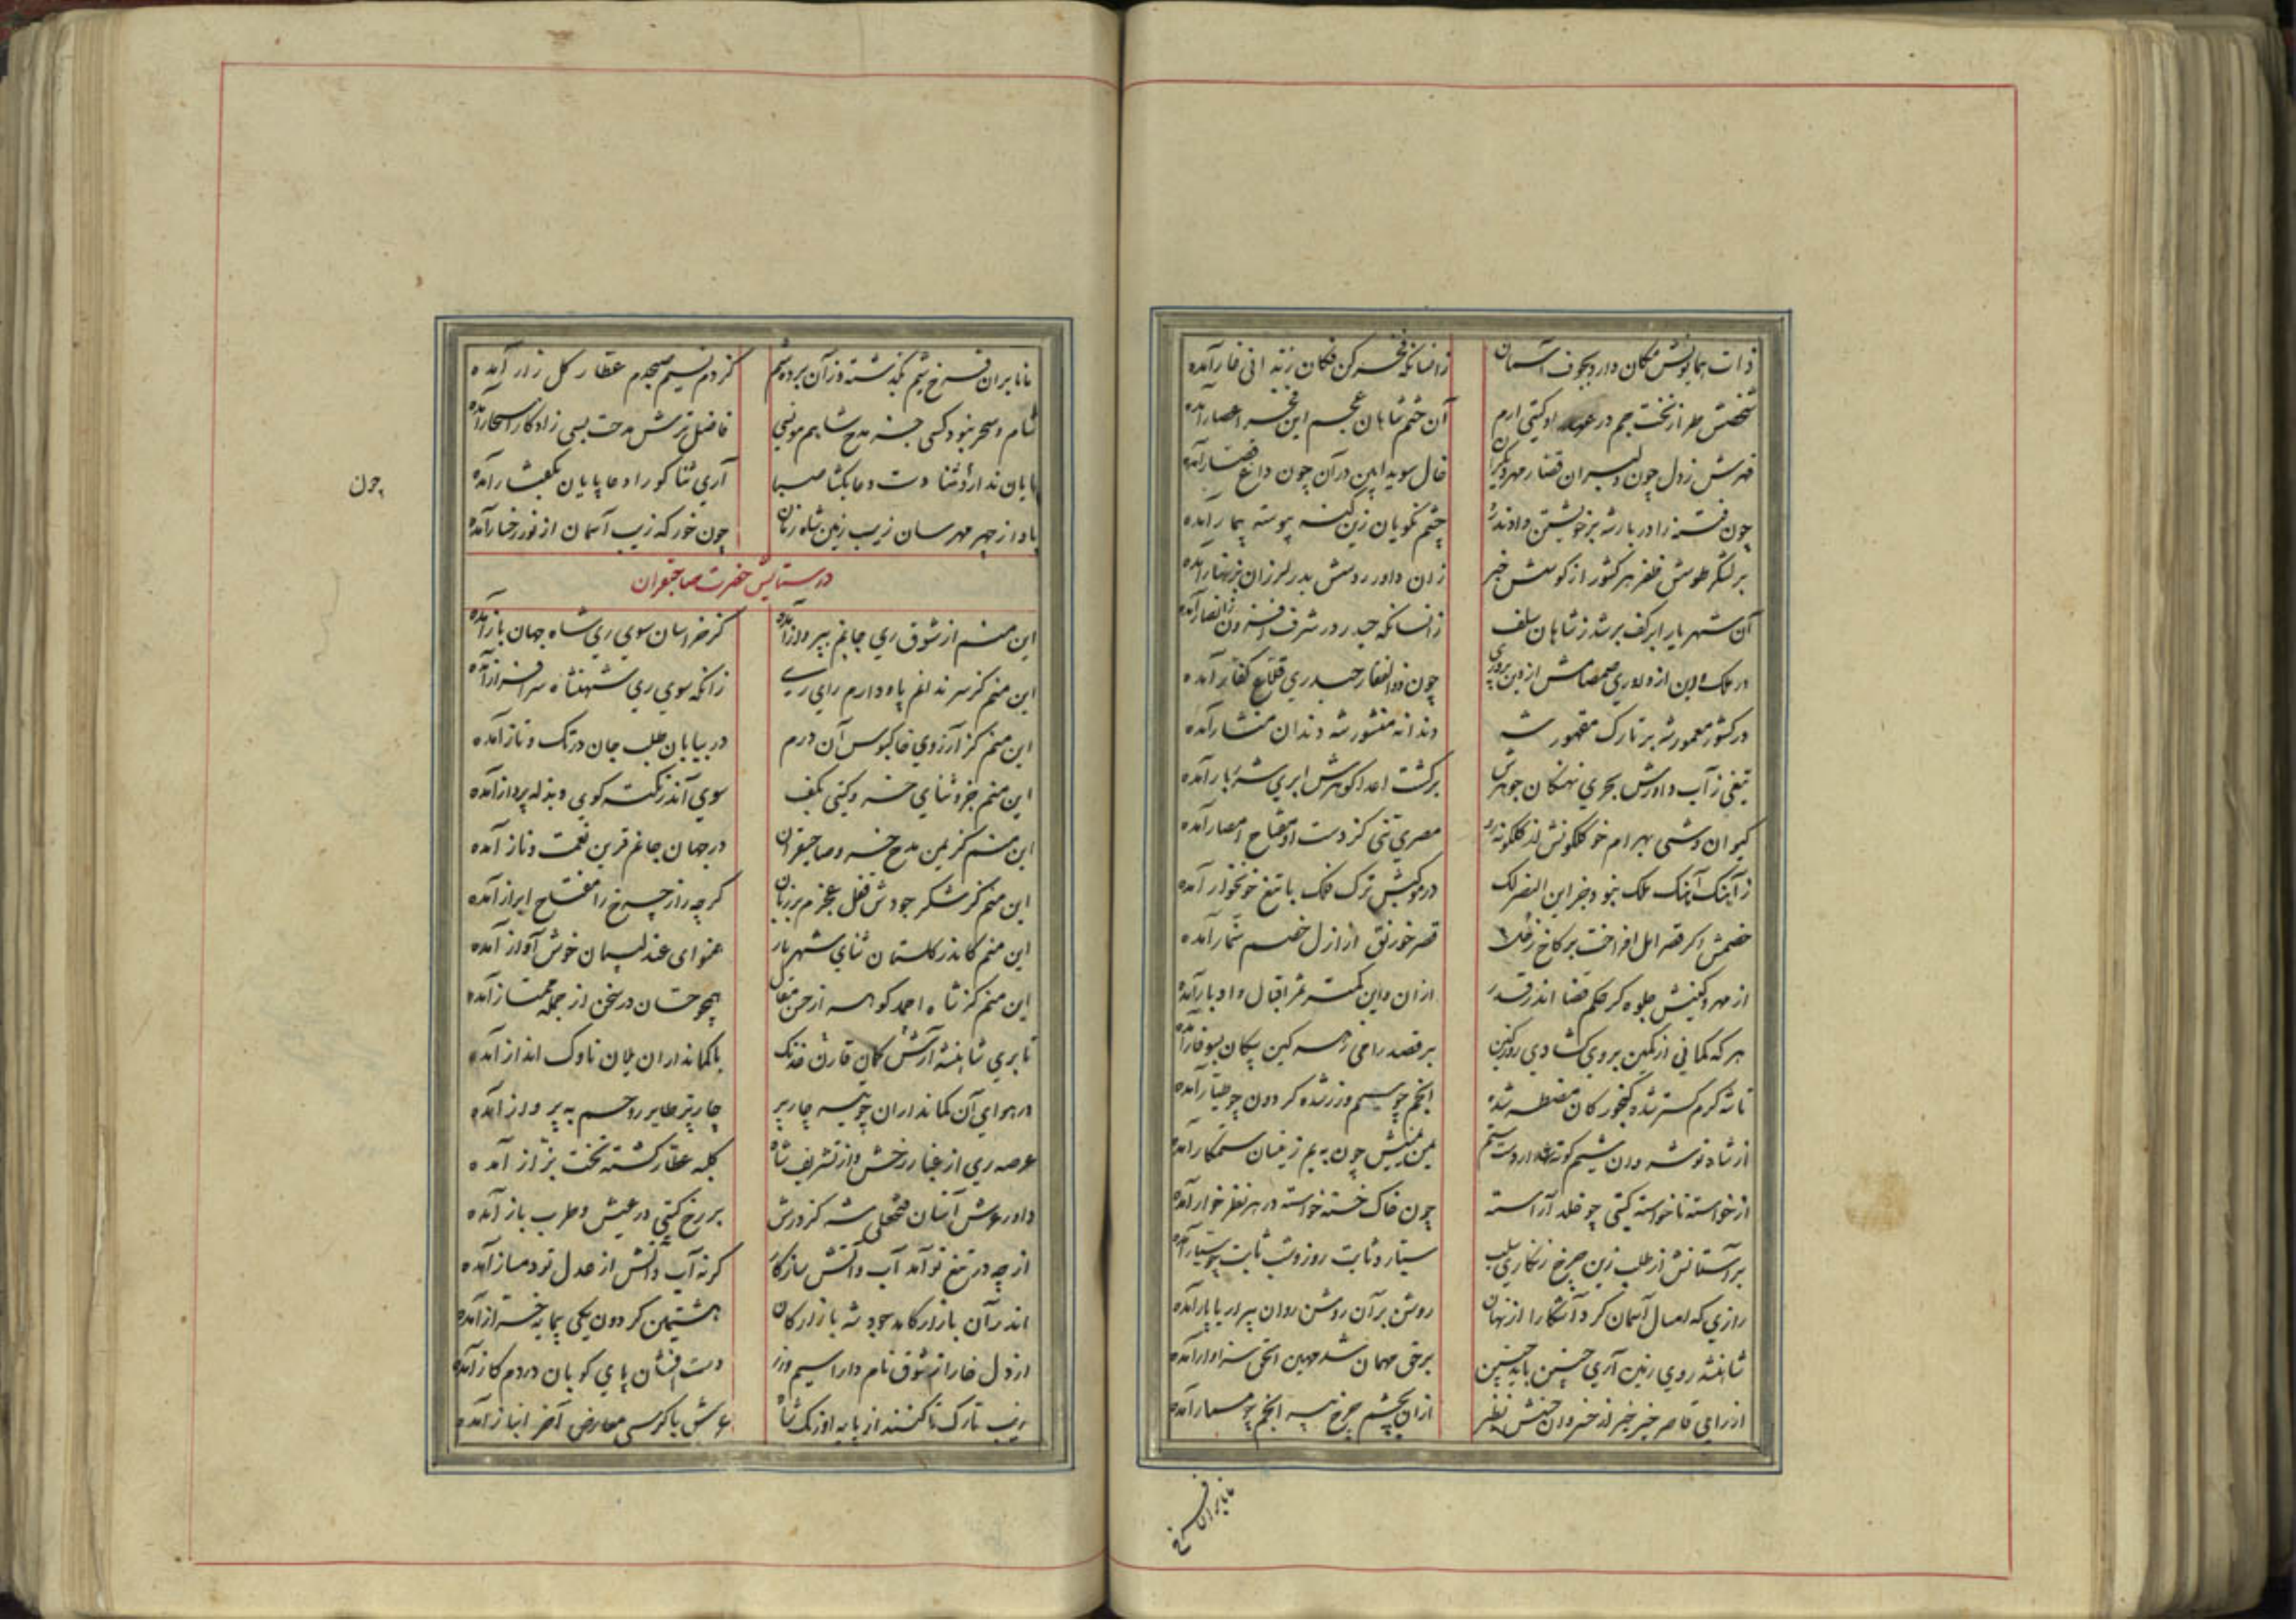 ذات همایونش مکان دارد بجوف آسمان زانسانکه فخر کن فکان زیند انی غار آمده
تختش طراز تخت جم در عهد او گیتی ارم آن ختم شاهان عجم این فخر اعصار آمده
مهرش ز دل چون دلبران قضا مهر دیگران خال سویدا بین در آن چون داغ قصار آمده
چون فتنه را در بار شه بر خویشتن دادند ره چشم نکویان زین گنه پیوسته بیمار آمده
بر لشکر طوسش ظفر هر کشور از کوسش خبر زان داور روسش بدر لرزان بزنهار آمده
آن شهریار ابر کف برشد ز شاهان سلف زانسانکه حیدر در شرف افزون ز انصار آمده
در ملک دین از داوری صمصامش از دین پروری چون ذوالفقار حیدری قلاع کفار آمده
در کشور معمور شه بر تارک مقهور شه دندانه منشور شه دندان منشار آمده
تیغی ز آب داورش بحری نهنگان جوهرش بر کشت اعدا گوهرش ابری شرر بار آمده
کیوان وشی بهرام خو گلگونش از گلگونه رو مصری تنی کز دست او مفتاح امصار آمده
ز آهنگ آهنگ ملک نبود جز این النصر لک در موکبش ترک فلک با تیغ خونخوار آمده
خصمش اگر قصر امل افراخت بر کاخ زحل قصر خورنق از ازل خصم سنمار آمده
از مهر و کینش جلوه گر حکم قضا اندر قدر از آن و این کمتر اثر اقبال و ادبار آمده
هر که کمانی از کمین بر وی گشادی روز کین بر قصد رامی زه سر کین پیکان بسوفار آمده
تا شه کرم گستر شده گنجور کان مضطر شده انجم چو سیم و زر شده گردون چو طیار آمده
از خواسته ناخواسته گیتی چو خلد آراسته چون خاک خسته خواسته در هر نظر خوار آمده
بر آستانش از طلب زین چرخ زنگاری سلب سیار و ثابت روز و شب ثابت چو سیار آمده
رازی که امسال آسمان کرد آشکارا از نهان روشن بر آن روشن روان پیرار یا پار آمده
شاهنشه روی زمین آری چنین باید چنین بر حق مهمان شد مهین الحق سزاوار آمده
از رامی قاصر خبر خبر از خسروان حشمش نظر از آن بچشم چرخ بر انجم چو مسمار آمده
نابران فرخ
نابران فرخ شیم بگذشته وز آن برده شم کز دم نسیم صبحدم عطار گلزار آمده
شام و سحر نبود کسی جز مدح شاهم مونسی فاضلترش مدحت بسی ز اذکار اسحار آمده
پایان ندارد ثنا دست دعا بگشا صبا آری ثنا گو را دعا پایان گفتار آمده
بادا ز چهر مهرسان زیب زمین شاه زمان چون خور که زیب آسمان از نور رخسار آمده
چون
در ستایش حضرت صاحبقران
این منم از شوق ری جانم بپرواز آمده کز خراسان سوی ری شاه جهان باز آمده
این منم کز سر ندانم پا و دارم رای ری زانکه سوی ری شهنشاه سرافراز آمده
این منم کز آرزوی خاکبوس آن درم در بیابان طلب جان در تک و تاز آمده
این منم جزو ثنای خسرو گیتی بکف سوی آن در نکته گوی و بذله پرداز آمده
این منم کز یمن مدح خسرو صاحبقران در جهان جانم قرین نعمت و ناز آمده
این منم کز شکر جودش قفل عجزم بر زبان گرچه راز چرخ را مفتاح ابراز آمده
این منم کاندر گلستان ثنای شهریار همنوای عندلیبان خوش آواز آمده
این منم کز شاه احمد گوهر از حسن مقال همچو حسان در سخن از جمله ممتاز آمده
تا بری شاهنشه آرش کمان قارن خدنگ با کمانداران یلان ناوک انداز آمده
در هوای آن کمانداران چو تیر چارپر چارپر طایر روحم به پرواز آمده
عرصه ری از غبار رخش و از تشریف شاه کلبه عطار گشته تخت بزاز آمده
داور عرش آستان فتحعلی شه کز درش بر رخ گیتی در عیش و طرب باز آمده
از چه در تیغ تو آمد آب و آتش سازگار گرنه آب و آتش از عدل تو دمساز آمده
اندر آن بازار کامد جود شه بازارگان هشتمین گردون یکی بیمایه خراز آمده
از دل خارا ز شوق نام دارا سیم و زر دست افشان پای کوبان در دم گاز آمده
زیب تارک تا کنند از پایه اورنگ شاه عرش با کرسی معارض آخر انباز آمده